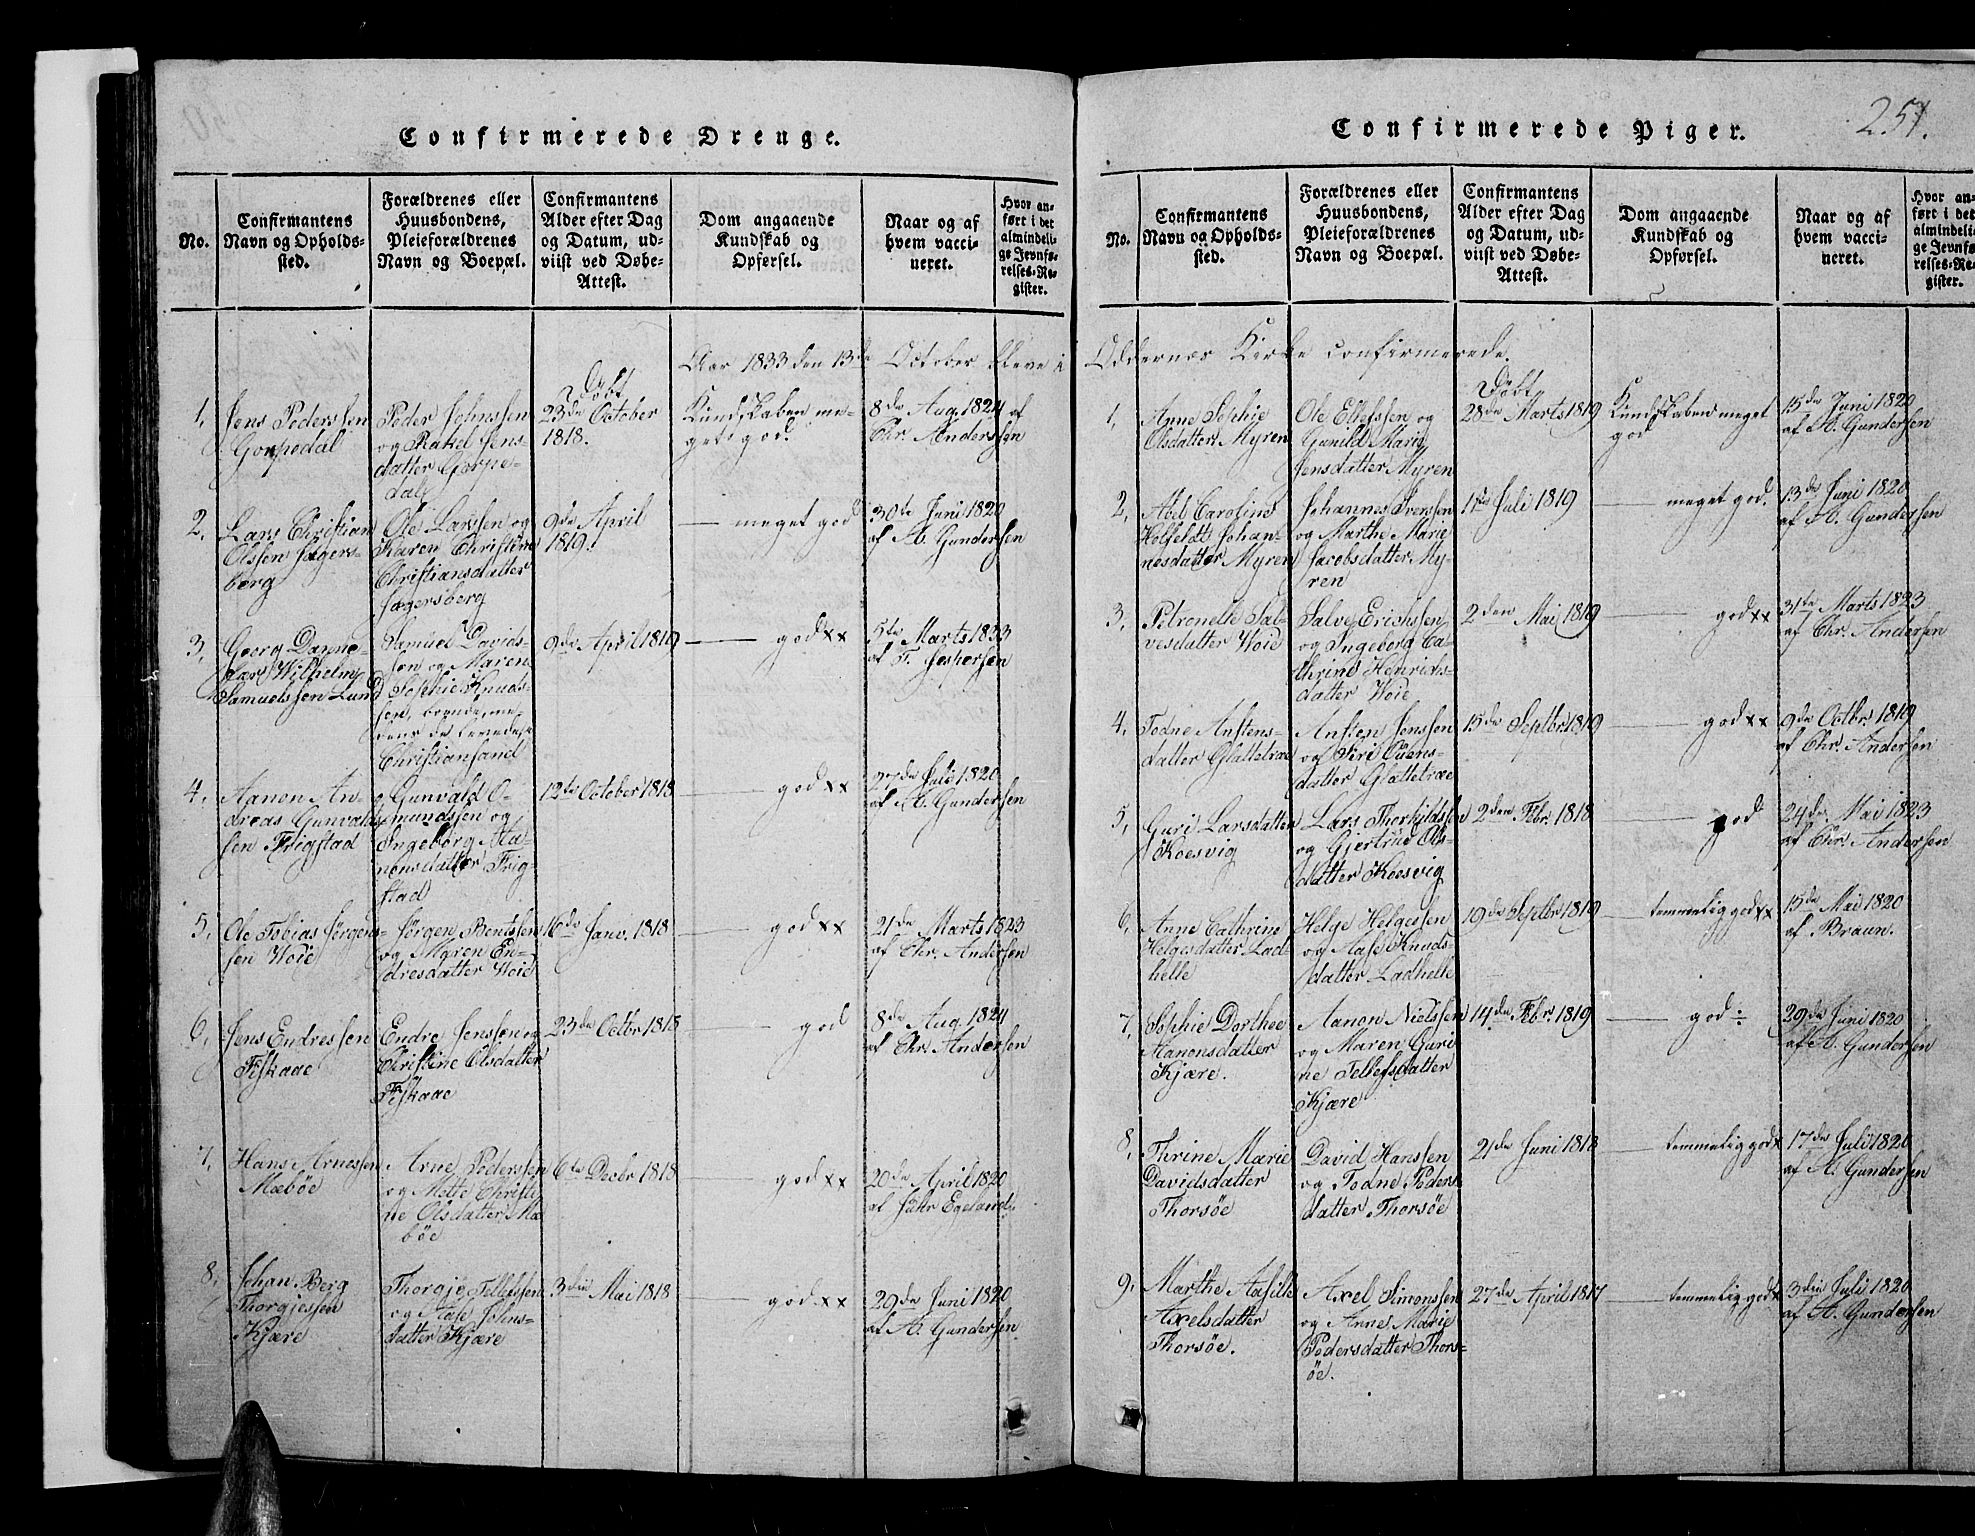 251.
Confirmerede Drenge.
No.
Confirmantens
Navn og Opholds-
sted.
Forældrenes eller
Huusbondens,
Pleieforældrenes
Navn og Boepæl.
Confirmantens
Alder efter Dag
og Datum, ud-
viist ved Døbe-
Attest.
Dom angaaende
Kundskab og
Opførsel.
Naar og af
hvem vacci-
neret.
Hvor an-
ført i det
almindeli-
ge Jevnfø-
relses-Re-
gister.
Aar 1833 den 13de October bleve i
1,
Jens Pederssen
Gorpedal
Peder Johnssen
og Rakel Jens-
datter Gorpe-
dal
Døbt
23de October
1818.
Kundskaben me-
get god.
8de Aug. 1824 af
Chr. Anderssen
2,
Lars Christian
Olssen Fagers-
berg
Ole Larssen og
Karen Christine
Christiansdatter
Fagersberg
9de April
1819.
— meget god
30te Juni 1820
af A. Gunderssen
3,
Georg Danne-
Wilhelm
Samuelssen Lund
Samuel Davids-
sen og Maren
Sophie Knuds-
Christiansand
9de April 1819
— god xx
5te Marts 1833
af T. Jespersen
4,
Aanon An-
dreas Gunvalds-
sen Frigstad
Gunvald O-
mundssen og
Ingeborg Aa-
nonsdatter Frig-
stad
12te October 1818
— god xx
27de Juli 1820
af A. Gunderssen
5,
Ole Tobias Jørgens-
sen Woie
Jørgen Bentssen
og Maren En-
dresdatter Woie
16de Janv. 1818
— god xx
21de Marts 1823
af Chr. Anderssen
6,
Jens Endressen
Fiskaae
Endre Jenssen og
Christine Olsdatter
Fiskaae
23de Octbr 1818
— god
8de Aug. 1824
af Chr. Anderssen
7,
Hans Arnessen
Mæbøe
Arne Pederssen
og Mette Christi-
ne Olsdatter Mæ-
bøe
6te Decbr 1818
— god xx
20de April 1820
af Egeland.
8,
Johan Berg
Thorgjessen
Kjære
Thorgje Tellefssen
og Aase Johns-
datter Kjære
3die Mai 1818
— god xx
29de Juni 1820
af A. Gunderssen
Confirmerede Piger.
No.
Confirmantens
Navn og Opholds-
sted.
Forældrenes eller
Huusbondens,
Pleieforældrenes
Navn og Boepæl.
Confirmantens
Alder efter Dag
og Datum, ud-
viist ved Døbe-
Attest.
Dom angaaende
Kundskab og
Opførsel.
Naar og af
hvem vacci-
neret.
Hvor an-
ført i det
almindeli-
ge Jevnfø-
relses-Re-
gister.
Oddernæs Kirke confirmerede.
1,
Anne Sophie
Olsdatter Myren
Ole Ellefssen og
Gunild Marie
Jensdatter Myren
Døbt
28de Marts 1819
Kundskaben meget
god
15de Juni 1820
af A. Gunderssen
2,
Abel Caroline
Holfeldt Johan-
nesdatter Myren
Johannes Iverssen
og Marthe Marie
Jacobsdatter My-
ren
11te Juli 1819
— meget god.
13de Juni 1820
af A. Gunderssen
3,
Petronelle Sal-
vesdatter Woie
Salve Erichssen
og Ingeborg Ca-
thrine Henrichs-
datter Woie
2den Mai 1819
— god xx
31te Marts 1823
af Chr. Andersen
4,
Todne Anstens-
datter Glattetræ
Ansten Jenssen
og Siri Ouens-
datter Glattetræ
15de Septbr. 1819
— god xx
9de Octbr. 1819
af Chr. Andersen
5,
Guri Larsdatter
Koesvig
Lars Thorkildssen
og Gjertrud Ols-
datter Koesvig
2den Febr. 1818
— god
24de Mai 1823
af Chr. Anderssen
6,
Anne Cathrine
Helgesdatter Lad-
helle
Helje Helgessen
og Aase Knuds-
datter Ladhelle
19de Septbr 1819
— temmelig god xx
15de Mai 1820
af Braun.
7,
Sophie Dorthea
Aanonsdatter
Kjære.
Aanon Nielssen
og Maren Guri-
ne Tellefsdatter
Kjære
14de Febr. 1819
— god
29de Juni 1820
af A. Gunderssen
8,
Thrine Marie
Davidsdatter
Thorsøe
David Hanssen
og Todne Peders-
datter Thorsøe
21de Juni 1818
— temmelig god x
17de Juli 1820
af A. Gunderssen
9,
Marthe Aasille
Axelsdatter
Thorsøe.
Axel Simonssen
og Anne Marie
Pedersdatter Thors-
øe.
27de April 1817
— temmelig god x
3die Juli 1820
af A. Gunderssen